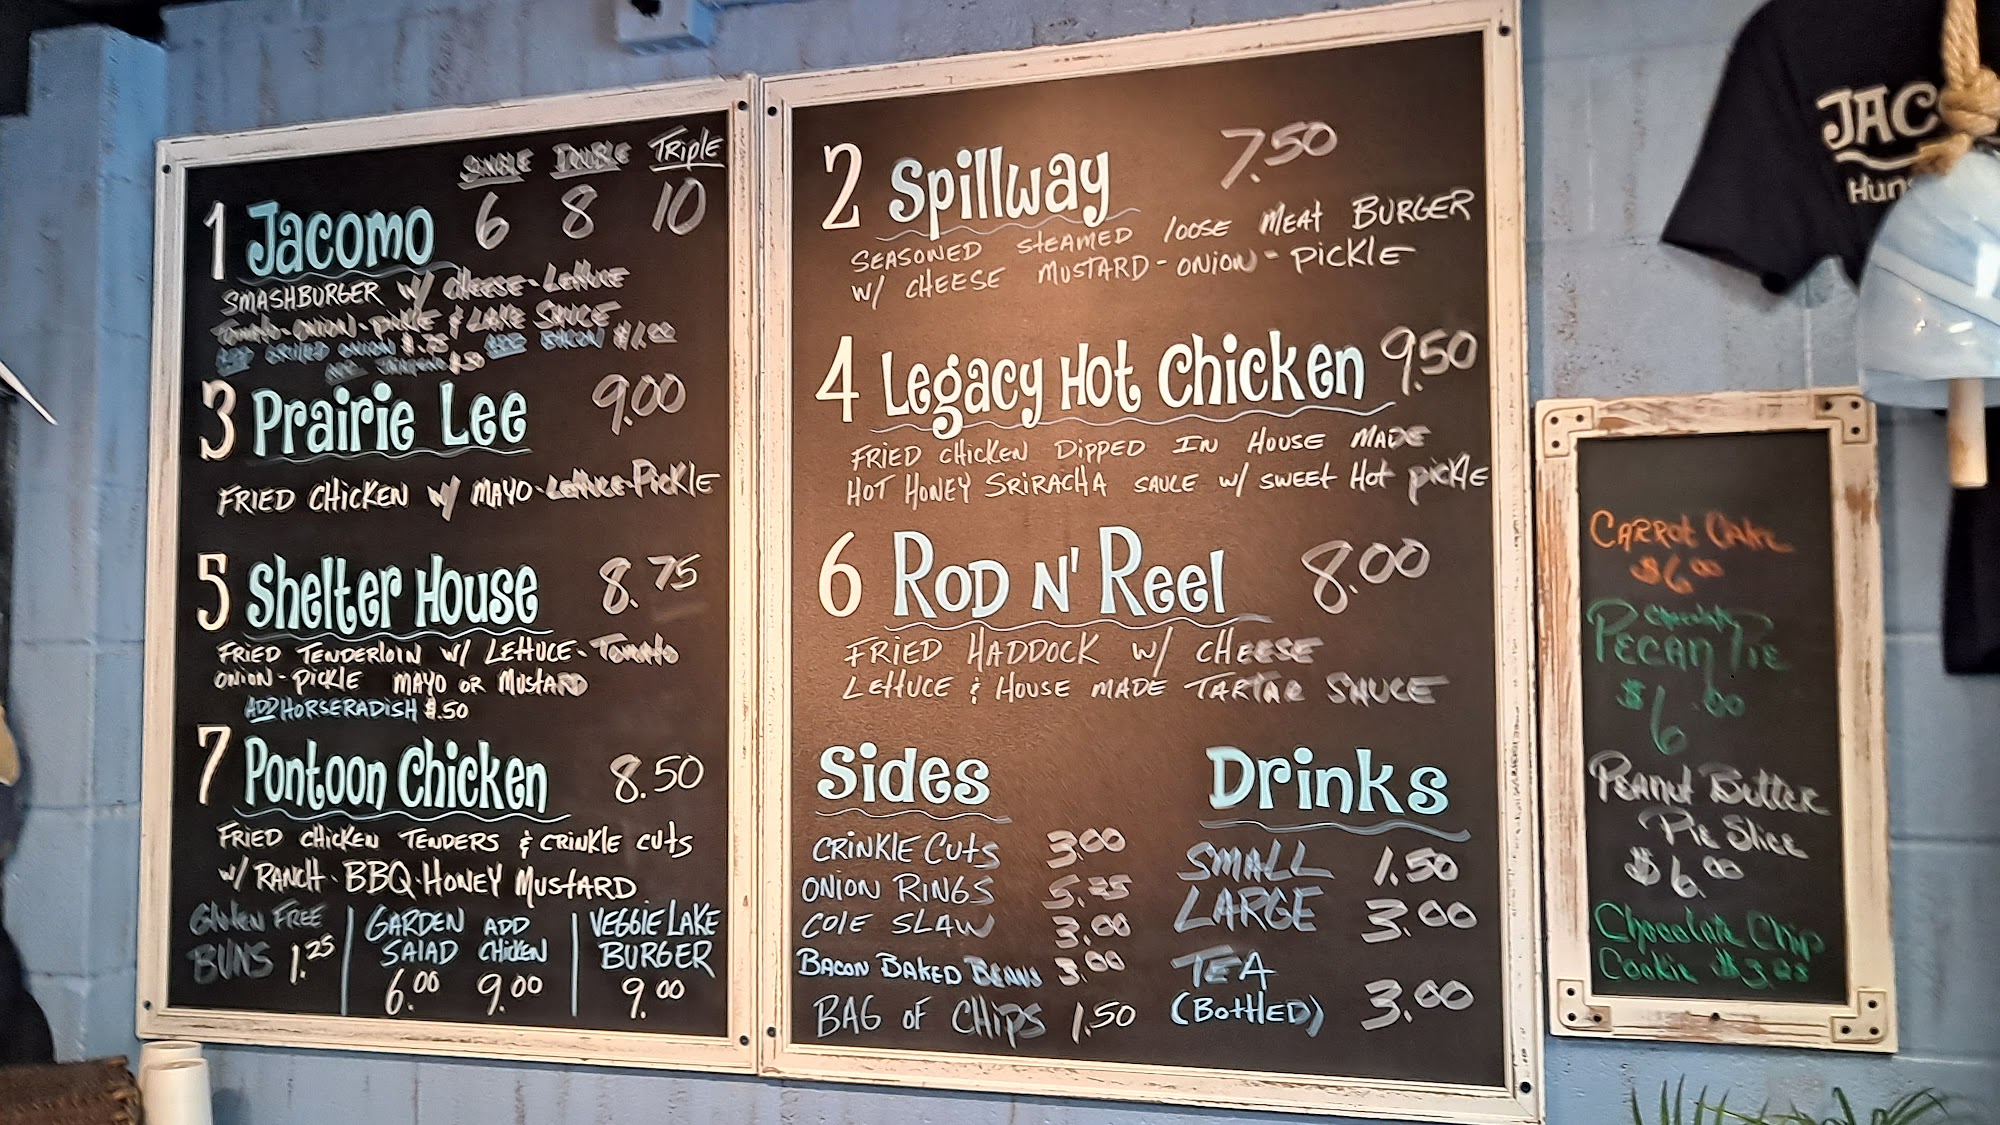 SINGLE DOUBLE TRIPLE
1 Jacomo 6 8 10
SMASHBURGER W/ CHEESE-LETTUCE
TOMATO-ONION-PICKLE & LAKE SAUCE
ADD GRILLED ONION $.75 ADD BACON $1.00
$.50
3 Prairie Lee 9.00
FRIED CHICKEN W/ MAYO-LETTUCE-PICKLE
5 Shelter House 8.75
FRIED TENDERLOIN W/ LETTUCE-TOMATO
ONION-PICKLE MAYO OR MUSTARD
ADD HORSERADISH $.50
7 Pontoon Chicken 8.50
FRIED CHICKEN TENDERS & CRINKLE CUTS
W/ RANCH-BBQ-HONEY MUSTARD
GLUTEN FREE
BUNS 1.25
GARDEN ADD
SALAD CHICKEN
6.00 9.00
VEGGIE LAKE
BURGER
9.00
2 Spillway 7.50
SEASONED STEAMED LOOSE MEAT BURGER
W/ CHEESE MUSTARD-ONION-PICKLE
4 Legacy Hot Chicken 9.50
FRIED CHICKEN DIPPED IN HOUSE MADE
HOT HONEY SRIRACHA SAUCE W/ SWEET HOT PICKLE
6 Rod N' Reel 8.00
FRIED HADDOCK W/ CHEESE
LETTUCE & HOUSE MADE TARTAR SAUCE
Sides
CRINKLE CUTS 3.00
ONION RINGS
COLE SLAW 3.00
BACON BAKED BEANS 3.00
BAG OF CHIPS 1.50
Drinks
SMALL 1.50
LARGE 3.00
TEA
(BOTTLED) 3.00
CARROT CAKE
$6.00
Chocolate
PECAN PIE
$6.00
PEANUT BUTTER
PIE SLICE
$6.00
Chocolate Chip
Cookie
JACO
Hun